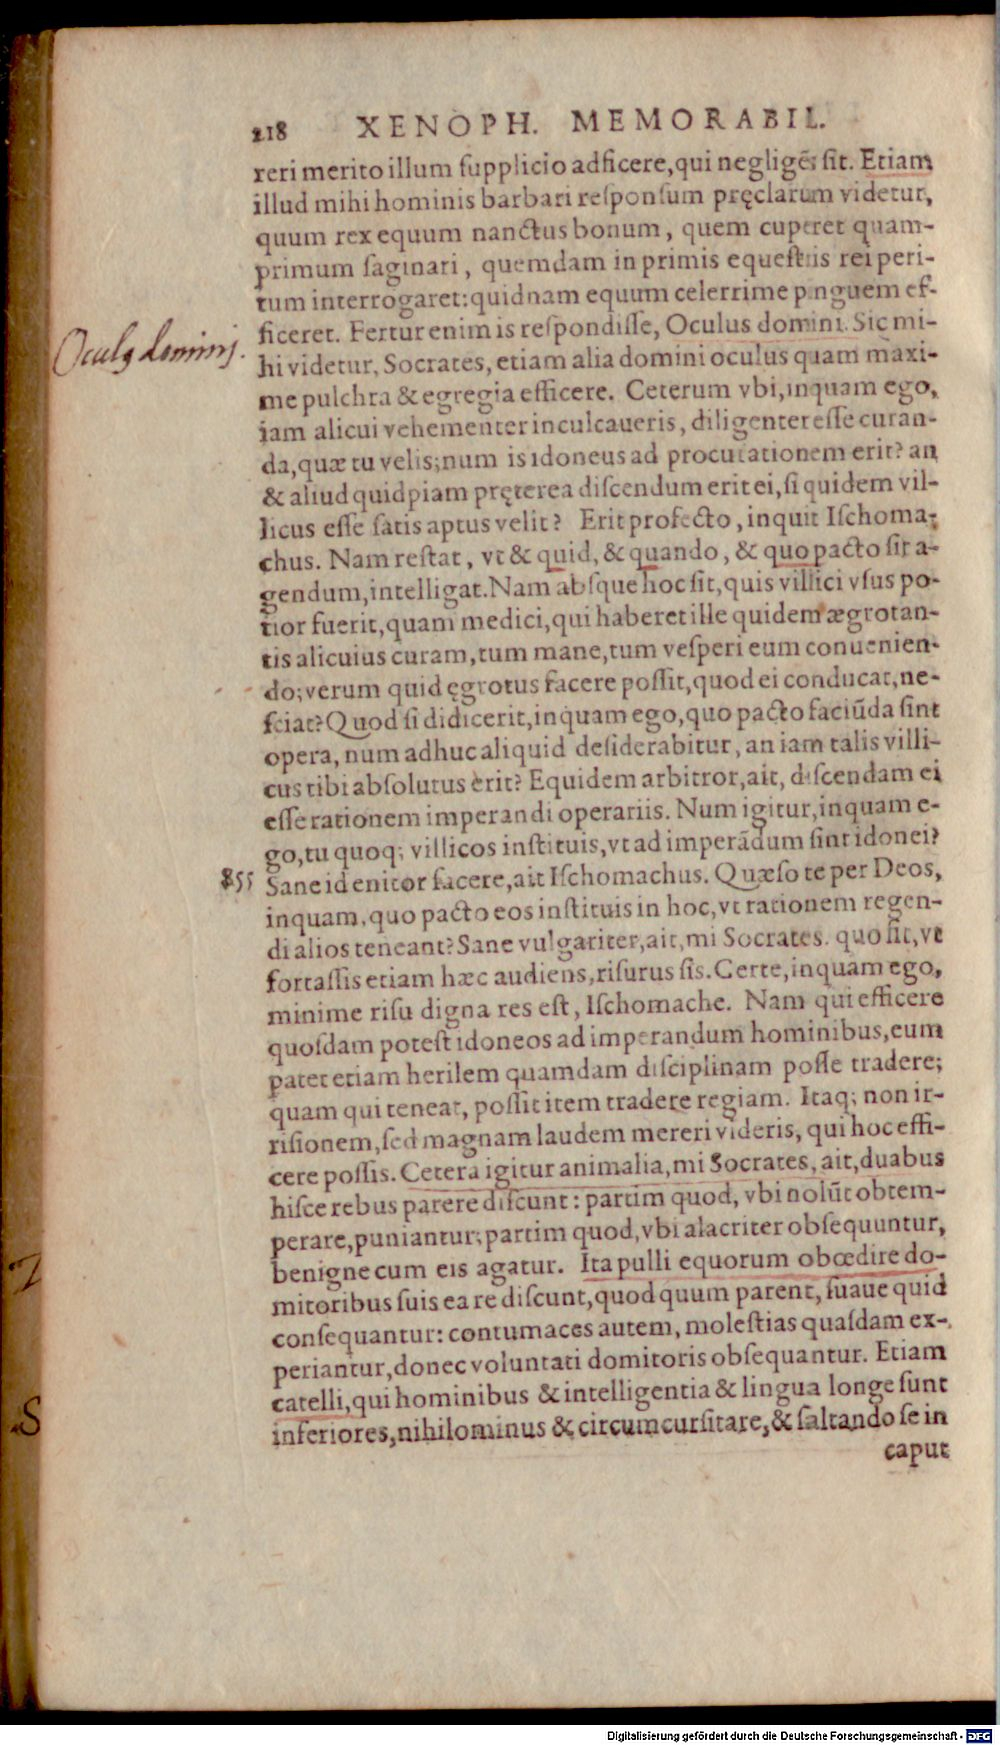 218 XENOPH. MEMORABIL.
reri merito illum ſupplicio adficere, qui negligẽs ſit. Etiam
illud mihi hominis barbari reſponſum pręclarum videtur,
quum rex equum nanctus bonum, quem cuperet quam-
primum ſaginari, quemdam in primis equeſtris rei peri-
tum interrogaret: quidnam equum celerrime pinguem ef-
ficeret. Fertur enim is reſpondiſſe, Oculus domini. Sic mi-
Oculꝯ dominj.
hi videtur, Socrates, etiam alia domini oculus quam maxi-
me pulchra & egregia efficere. Ceterum vbi, inquam ego,
iam alicui vehementer inculcaueris, diligenter eſſe curan-
da, quæ tu velis; num is idoneus ad procurationem erit? an
& aliud quidpiam pręterea diſcendum erit ei, ſi quidem vil-
licus eſſe ſatis aptus velit? Erit profecto, inquit Iſchoma-
chus. Nam reſtat, vt & quid, & quando, & quo pacto ſit a-
gendum, intelligat. Nam abſque hoc ſit, quis villici vſus po-
tior fuerit, quam medici, qui haberet ille quidem ægrotan-
tis alicuius curam, tum mane, tum veſperi eum conuenien-
do; verum quid ęgrotus facere poſſit, quod ei conducat, ne-
ſciat? Quod ſi didicerit, inquam ego, quo pacto faciũda ſint
opera, num adhuc aliquid deſiderabitur, an iam talis villi-
cus tibi abſolutus erit? Equidem arbitror, ait, diſcendam ei
eſſe rationem imperandi operariis. Num igitur, inquam e-
go, tu quoq; villicos inſtituis, vt ad imperãdum ſint idonei?
855 Sane id enitor facere, ait Iſchomachus. Quæſo te per Deos,
inquam, quo pacto eos inſtituis in hoc, vt rationem regen-
di alios teneant? Sane vulgariter, ait, mi Socrates. quo fit, vt
fortaſſis etiam hæc audiens, riſurus ſis. Certe, inquam ego,
minime riſu digna res eſt, Iſchomache. Nam qui efficere
quoſdam poteſt idoneos ad imperandum hominibus, eum
patet etiam herilem quamdam diſciplinam poſſe tradere;
quam qui teneat, poſſit item tradere regiam. Itaq; non ir-
riſionem, ſed magnam laudem mereri videris, qui hoc effi-
cere poſſis. Cetera igitur animalia, mi Socrates, ait, duabus
hiſce rebus parere diſcunt: partim quod, vbi nolũt obtem-
perare, puniantur; partim quod, vbi alacriter obſequuntur,
benigne cum eis agatur. Ita pulli equorum obœdire do-
mitoribus ſuis ea re diſcunt, quod quum parent, ſuaue quid
conſequantur: contumaces autem, moleſtias quaſdam ex-
periantur, donec voluntati domitoris obſequantur. Etiam
catelli, qui hominibus & intelligentia & lingua longe ſunt
inferiores, nihilominus & circumcurſitare, & ſaltando ſe in
caput
Digitalisierung gefördert durch die Deutsche Forschungsgemeinschaft - DFG